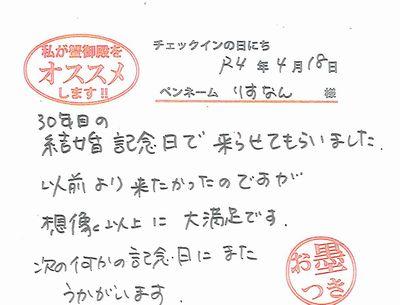 私が蟹御殿を
オススメ
します!!
チェックインの日にち
R4 年 4月 18日
ペンネーム りすなん 様
30年目の
結婚記念日で 来らせてもらいました.
以前より来たかったのですが
想像以上に 大満足です.
次の何かの記念日に また
うかがいます
お墨
つき